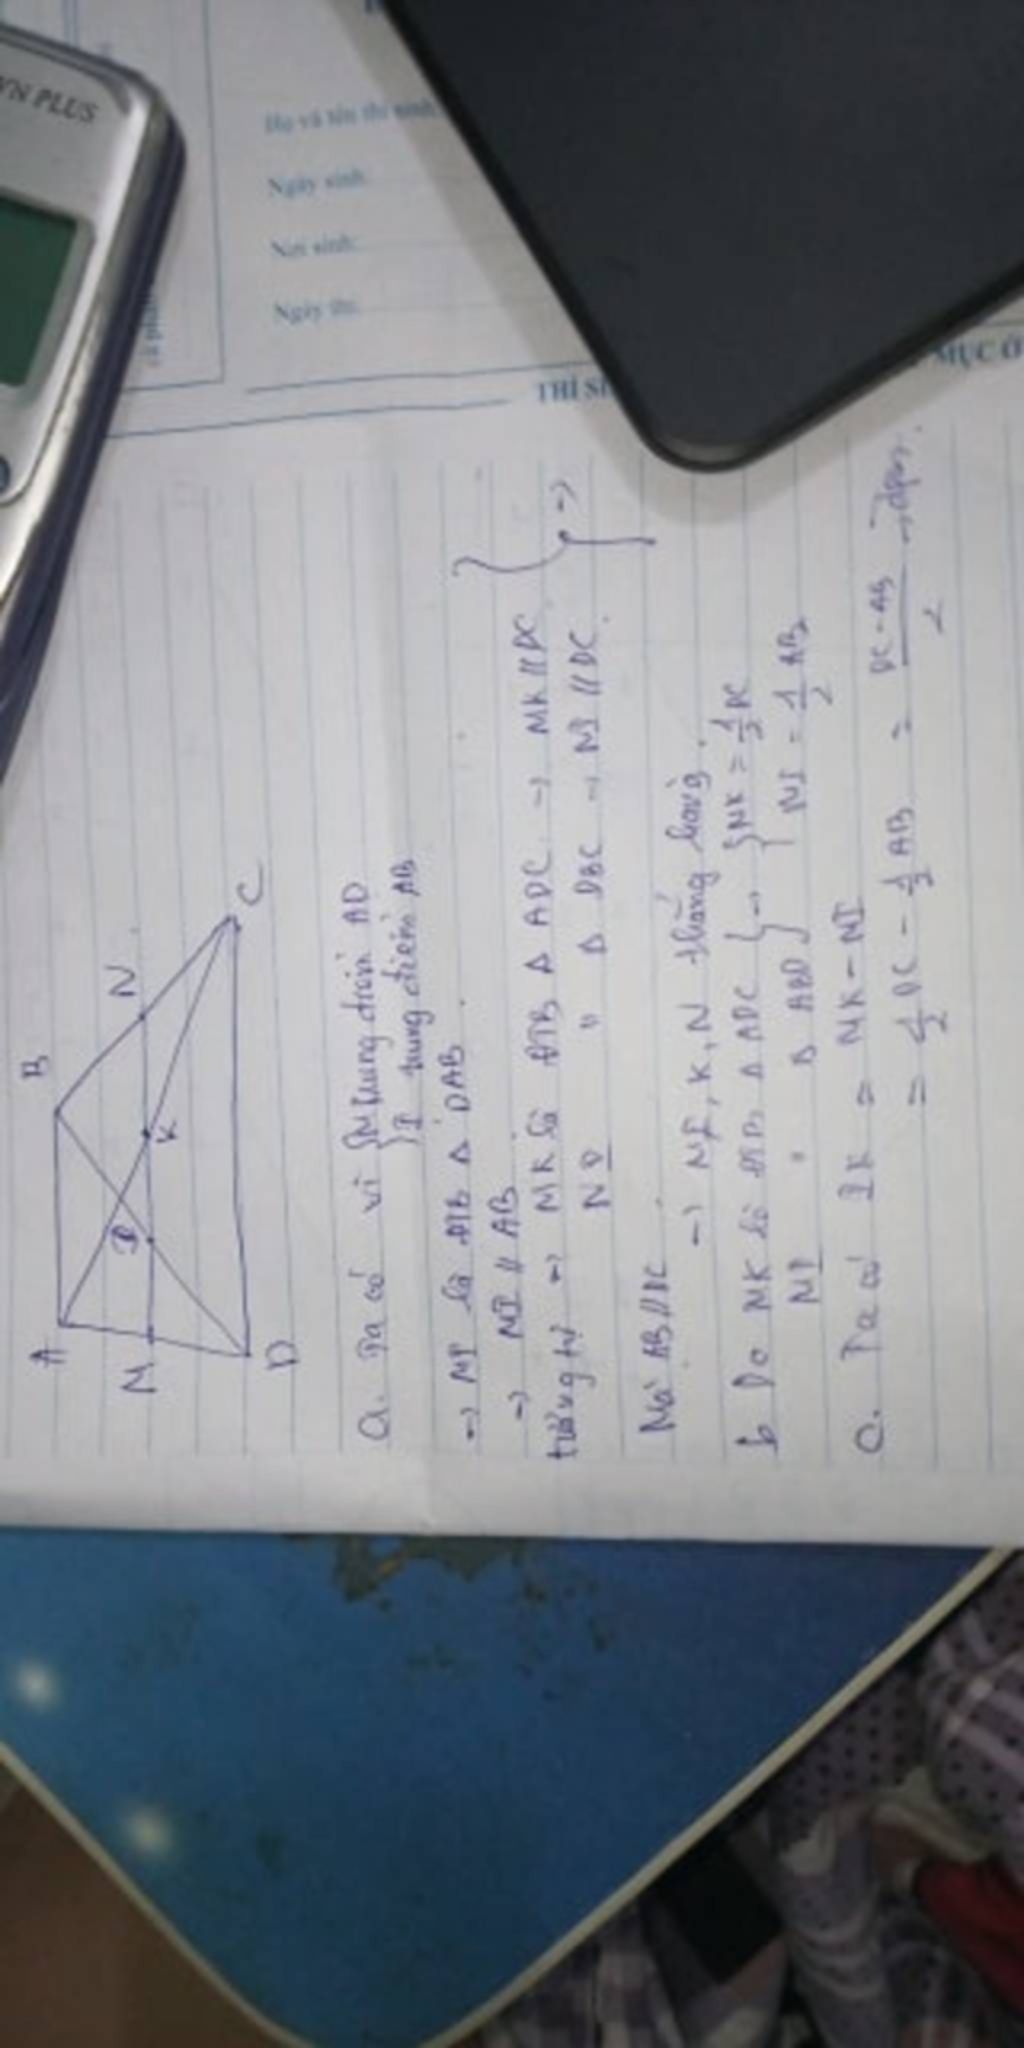 VN PLUS
Họ và tên thí sinh:
Ngày sinh:
Nơi sinh:
Ngày thi:
THÍ SI
MỤC Ở
A
B
M
I
K
N
D
C
a. Ta có vì { M trung điểm AD
I trung điểm AB
→ MI là ĐTB Δ DAB
→ MI // AB
tương tự → MK là ĐTB Δ ADC → MK // DC
NI " Δ DBC → NI // DC
} →
Mà AB // DC
→ M, I, K, N thẳng hàng.
b Do MK là ĐTB Δ ADC } → { MK = 1/2 DC
MI " Δ ABD } { MI = 1/2 AB
c. Ta có IK = MK - MI
= 1/2 DC - 1/2 AB = (DC - AB)/2 → đpcm.